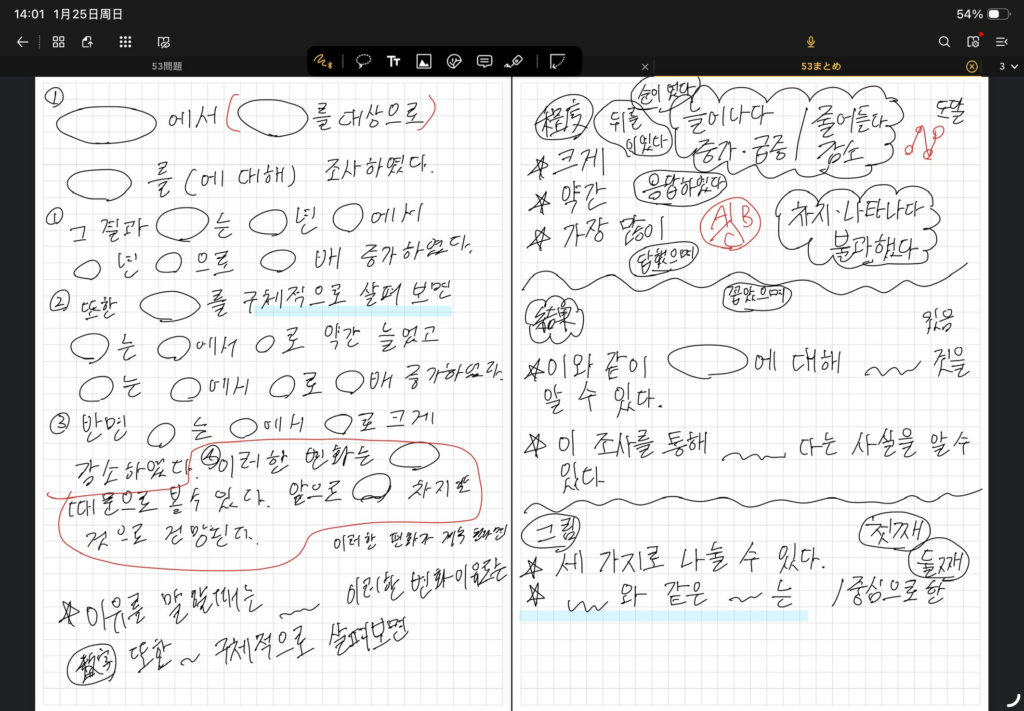 14:01 1月25日周日
54%
53問題
53まとめ
3
①
에서 ( 를 대상으로)
를 (에 대해) 조사하였다.
① 그 결과 는 년 에서
년 으로 배 증가하였다.
② 또한 를 구체적으로 살펴 보면
는 에서 로 약간 늘었고
는 에서 로 배 증가하였다.
③ 반면 는 에서 로 크게
감소하였다. ④ 이러한 변화는
때문으로 볼 수 있다. 앞으로 차지할
것으로 전망된다.
이러한 변화가 계속 된다면
이유를 말할때는 이러한 변화 이유로는
数字 또한 ~ 구체적으로 살펴보면
程度
순이었다
뒤를
이었다
늘어나다 / 줄어들다
증가·급증 / 감소
도달
크게
약간
응답하였다
가장 많이
답했으며
A B
C
차지·나타나다
불과했다
꼽았으며
結果
있음
이와 같이 에 대해 것을
알 수 있다.
이 조사를 통해 다는 사실을 알 수
있다
그림
첫째
둘째
세 가지로 나눌 수 있다.
와 같은 는 /중심으로 한